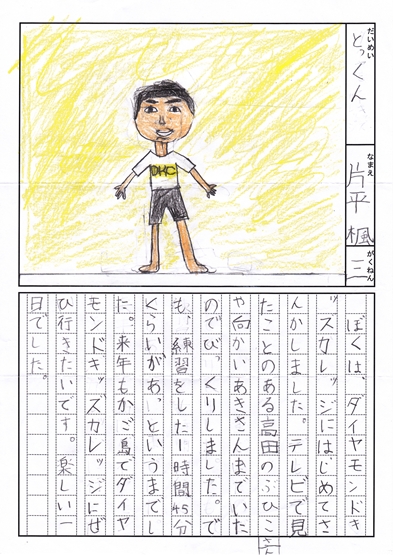 だいめい
とっくん
なまえ
片平楓
がくねん
三
DKC
ぼくは、ダイヤモンドキ
ッズカレッジにはじめてさ
んかしました。テレビで見
たことのある高田のぶひこさん
や向かいあきさんまでいた
のでびっくりしました。で
も、練習をした1時間45分
くらいがあっというまでし
た。来年もかご島でダイヤ
モンドキッズカレッジにぜ
ひ行きたいです。楽しい一
日でした。